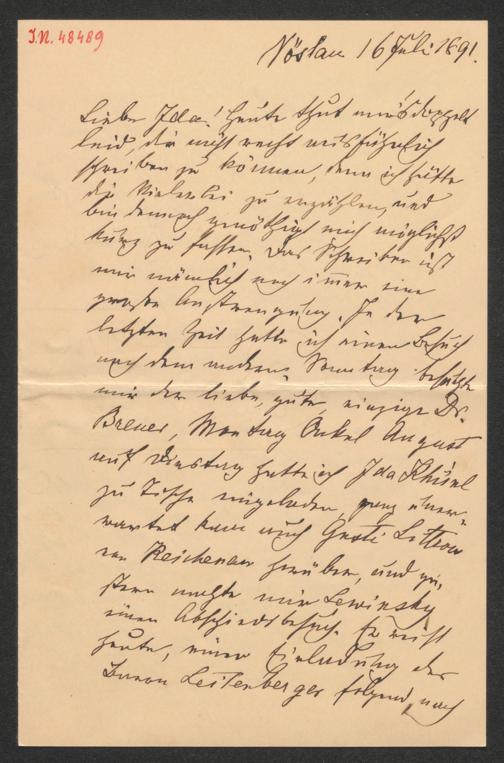 I.N. 48489
Vöslau 16 Juli 1891.
Liebe Ida! Heute thut mir's doppelt
leid, dir nicht recht ausführlich
schreiben zu können, denn ich hätte
dir Vielerlei zu erzählen, und
bin dennoch genöthigt mich möglichst
kurz zu fassen. Das Schreiben ist
mir nämlich noch immer eine
große Anstrengung. In der
letzten Zeit hatte ich einen Besuch
nach dem andern. Sonntag besuchte
mir der liebe, gute, einzige Dr.
Breuer, Montag Onkel August
auf Dienstag hatte ich Ida Khünl
zu Tische eingeladen, ganz uner-
wartet kam auch Gusti Littrow
von Reichenau herüber, und ge-
stern machte mir Lewinsky
einen Abschiedsbesuch. Er reist
heute, einer Einladung des
Baron Leitenberger folgend, nach